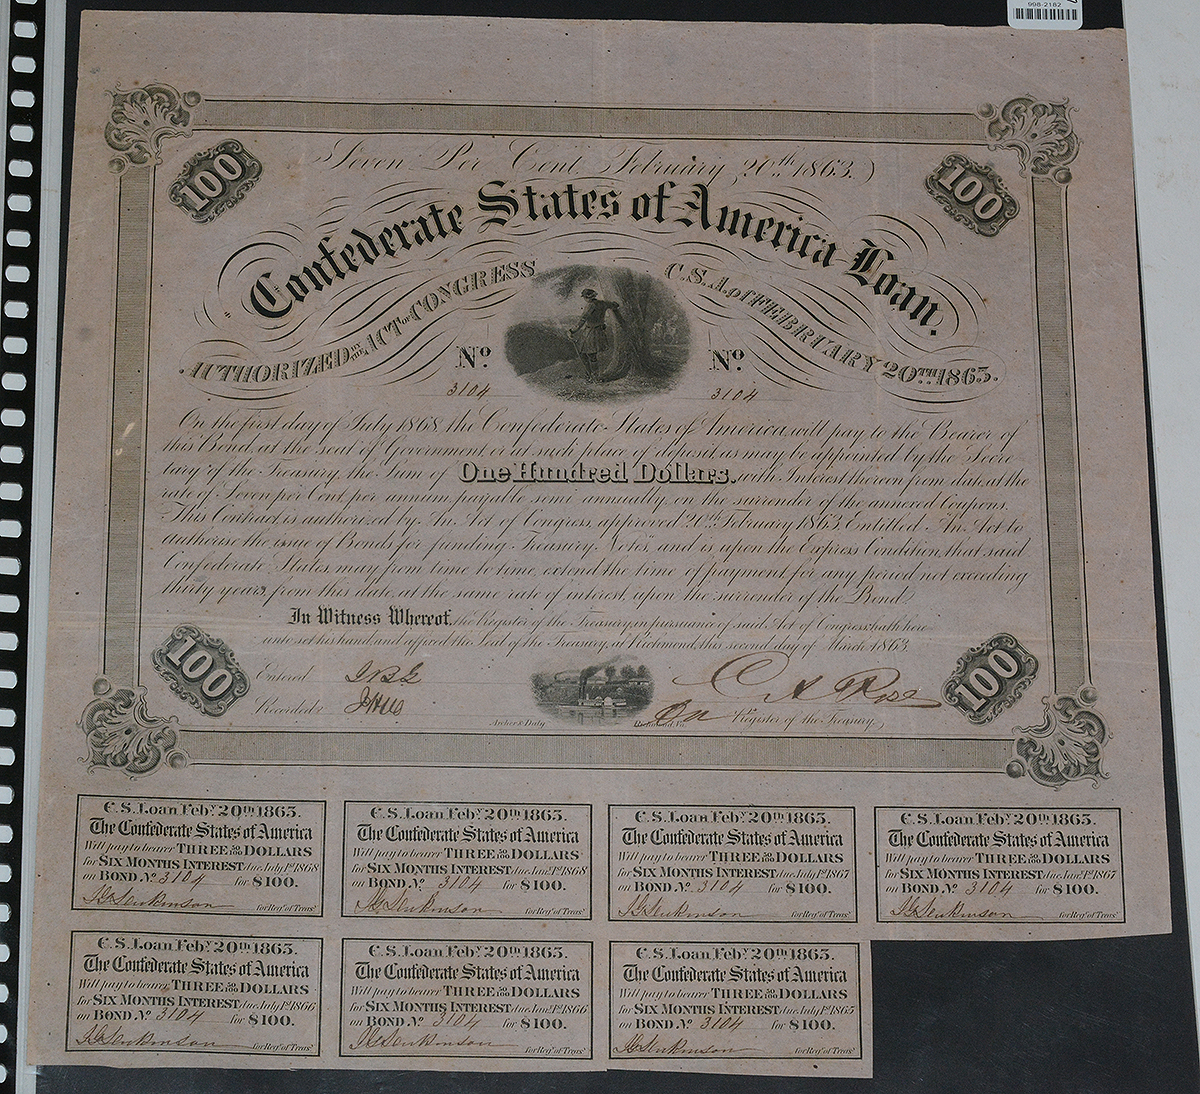 998-2182
Seven Per Cent. February 20th 1863.
100
100
Confederate States of America Loan.
AUTHORIZED BY THE ACT OF CONGRESS C.S.A. of FEBRUARY 20TH 1863.
No. No.
3104 3104
On the first day of July 1868, the Confederate States of America, will pay to the Bearer of
this Bond, at the seat of Government, or at such place of deposit, as may be appointed by the Secre-
tary of the Treasury, the Sum of One Hundred Dollars. with Interest thereon from date, at the
rate of Seven per Cent. per annum, payable semi-annually, on the surrender of the annexed Coupons.
This Contract, is authorized by An Act of Congress, approved 20th February 1863, Entitled "An Act to
authorise the issue of Bonds for funding Treasury Notes", and is upon the Express Condition, that said
Confederate States may from time to time, extend the time of payment, for any period not exceeding
thirty years, from this date, at the same rate of interest, upon the surrender of the Bond.
In Witness Whereof, the Register of the Treasury, in pursuance of said Act of Congress, hath here-
unto set his hand, and affixed the Seal of the Treasury, at Richmond, this second day of March 1863.
100
100
Entered
Recorded
C. A. Rose
Register of the Treasury
Archer & Daly Richmond, Va.
C.S. Loan Feby. 20TH 1863.
The Confederate States of America
Will pay to bearer THREE 50/100 DOLLARS
for SIX MONTHS INTEREST due July 1st 1868
on BOND No. 3104 for $100.
for Regr. of Treasy.
C.S. Loan Feby. 20TH 1863.
The Confederate States of America
Will pay to bearer THREE 50/100 DOLLARS
for SIX MONTHS INTEREST due Jany. 1st 1868
on BOND No. 3104 for $100.
for Regr. of Treasy.
C.S. Loan Feby. 20TH 1863.
The Confederate States of America
Will pay to bearer THREE 50/100 DOLLARS
for SIX MONTHS INTEREST due July 1st 1867
on BOND No. 3104 for $100.
for Regr. of Treasy.
C.S. Loan Feby. 20TH 1863.
The Confederate States of America
Will pay to bearer THREE 50/100 DOLLARS
for SIX MONTHS INTEREST due Jany. 1st 1867
on BOND No. 3104 for $100.
for Regr. of Treasy.
C.S. Loan Feby. 20TH 1863.
The Confederate States of America
Will pay to bearer THREE 50/100 DOLLARS
for SIX MONTHS INTEREST due July 1st 1866
on BOND No. 3104 for $100.
for Regr. of Treasy.
C.S. Loan Feby. 20TH 1863.
The Confederate States of America
Will pay to bearer THREE 50/100 DOLLARS
for SIX MONTHS INTEREST due Jany. 1st 1866
on BOND No. 3104 for $100.
for Regr. of Treasy.
C.S. Loan Feby. 20TH 1863.
The Confederate States of America
Will pay to bearer THREE 50/100 DOLLARS
for SIX MONTHS INTEREST due July 1st 1865
on BOND No. 3104 for $100.
for Regr. of Treasy.